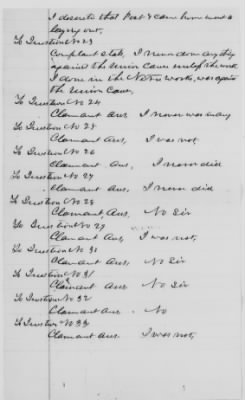 I deserted that Post & came home went a
laying out.
To Question No 23
Complant stats. I never done anything
against the Union Cause unless the work
I done in the Nitre works, was against
the Union Cause.
To Question No 24
Clamant Ans, I never was any
To Question No 25
Clamant Ans, I was not
To Question No 26
Claemant Ans, I never did
To Question No 27
Clamant Ans. I never did
To Question No 28
Clamant, Ans. No Sir
To Question No 29
Clamant Ans, I was not,
To Question No 30
Clamant Ans. No Sir
To Question No 31
Clamant Ans No Sir
To Question No 32
Clamant Ans. No
To Question No 33
Clamant Ans. I was not,